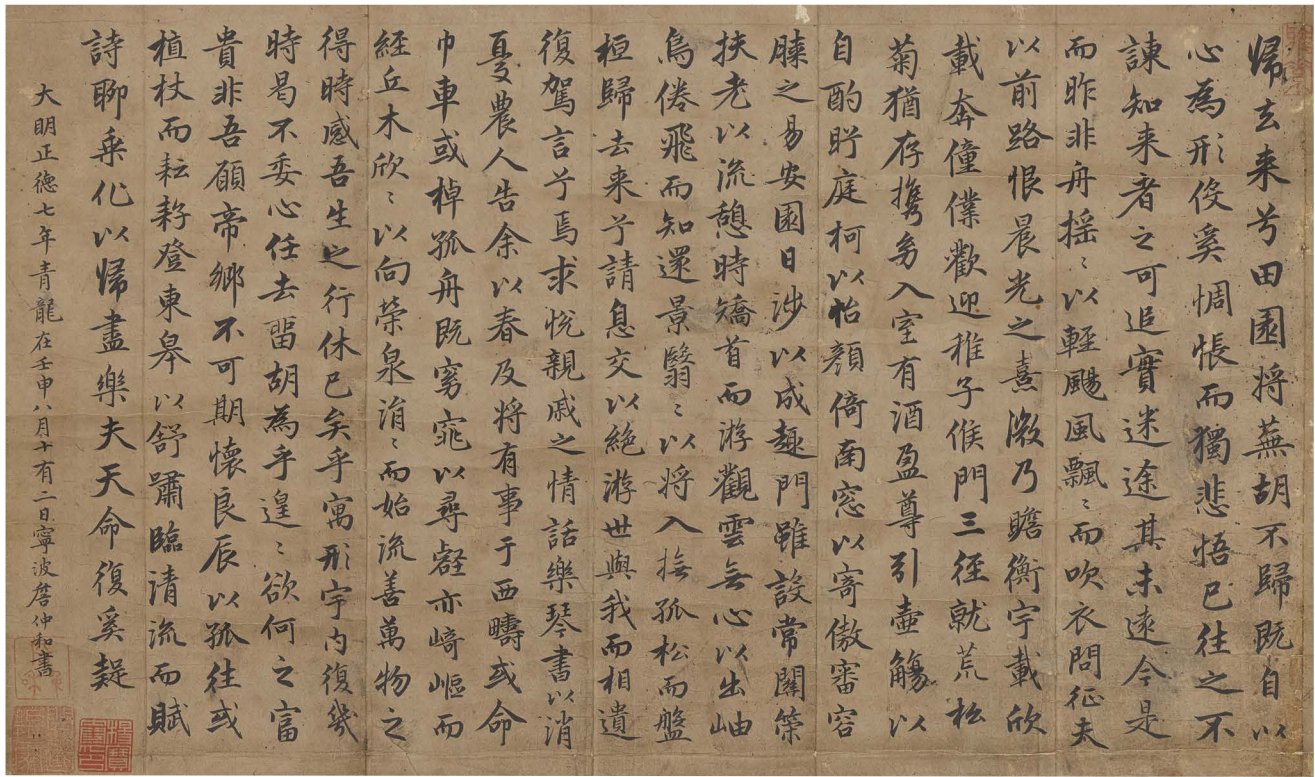 歸去来兮田園将蕪胡不歸既自以
心為形役奚惆悵而獨悲悟已往之不
諫知来者之可追實迷途其未遠今是
而昨非舟摇〻以輕颺風飄〻而吹衣問征夫
以前路恨晨光之熹微乃瞻衡宇載欣
載奔僮僕歡迎稚子候門三径就荒松
菊猶存携幼入室有酒盈尊引壷觴以
自酌眄庭柯以怡顔倚南窓以寄傲審容
膝之易安園日涉以成趣門雖設常關策
扶老以流憩時矯首而游觀雲無心以出岫
鳥倦飛而知還景翳〻以将入撫孤松而盤
桓歸去来兮請息交以絶游世與我而相遺
復駕言兮焉求悦親戚之情話樂琴書以消
憂農人告余以春及将有事于西疇或命
巾車或棹孤舟既窈窕以尋壑亦崎嶇而
経丘木欣〻以向榮泉涓〻而始流善萬物之
得時感吾生之行休已矣乎寓形宇内復幾
時曷不委心任去留胡為乎遑〻欲何之富
貴非吾願帝鄉不可期懷良辰以孤往或
植杖而耘耔登東皋以舒嘯臨清流而賦
詩聊乗化以歸盡樂夫天命復奚疑
大明正德七年青龍在壬申八月十有二日寧波詹仲和書